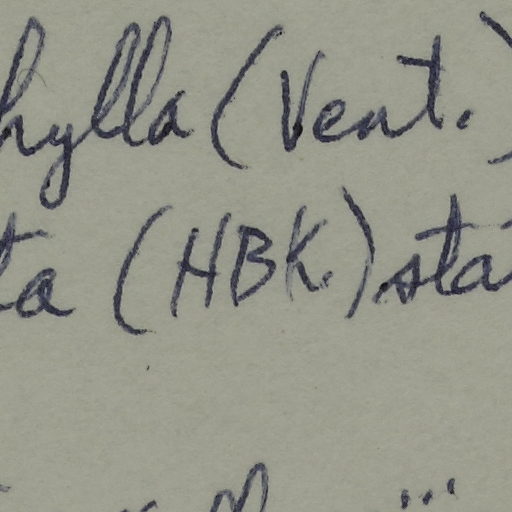 hylla (Vent.)
ta (HBK) sta